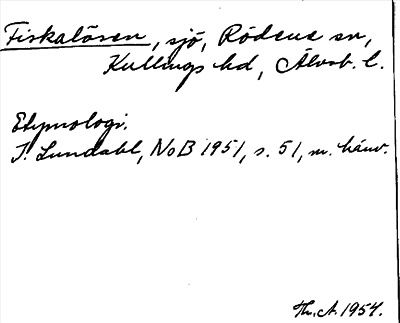 Fiskalösen, sjö, Rödene sn,
Kullings hd, Älvsb. l.
Etymologi.
I. Lundahl, NoB 1951, s. 51, m. hänv.
Hn. A. 1954.